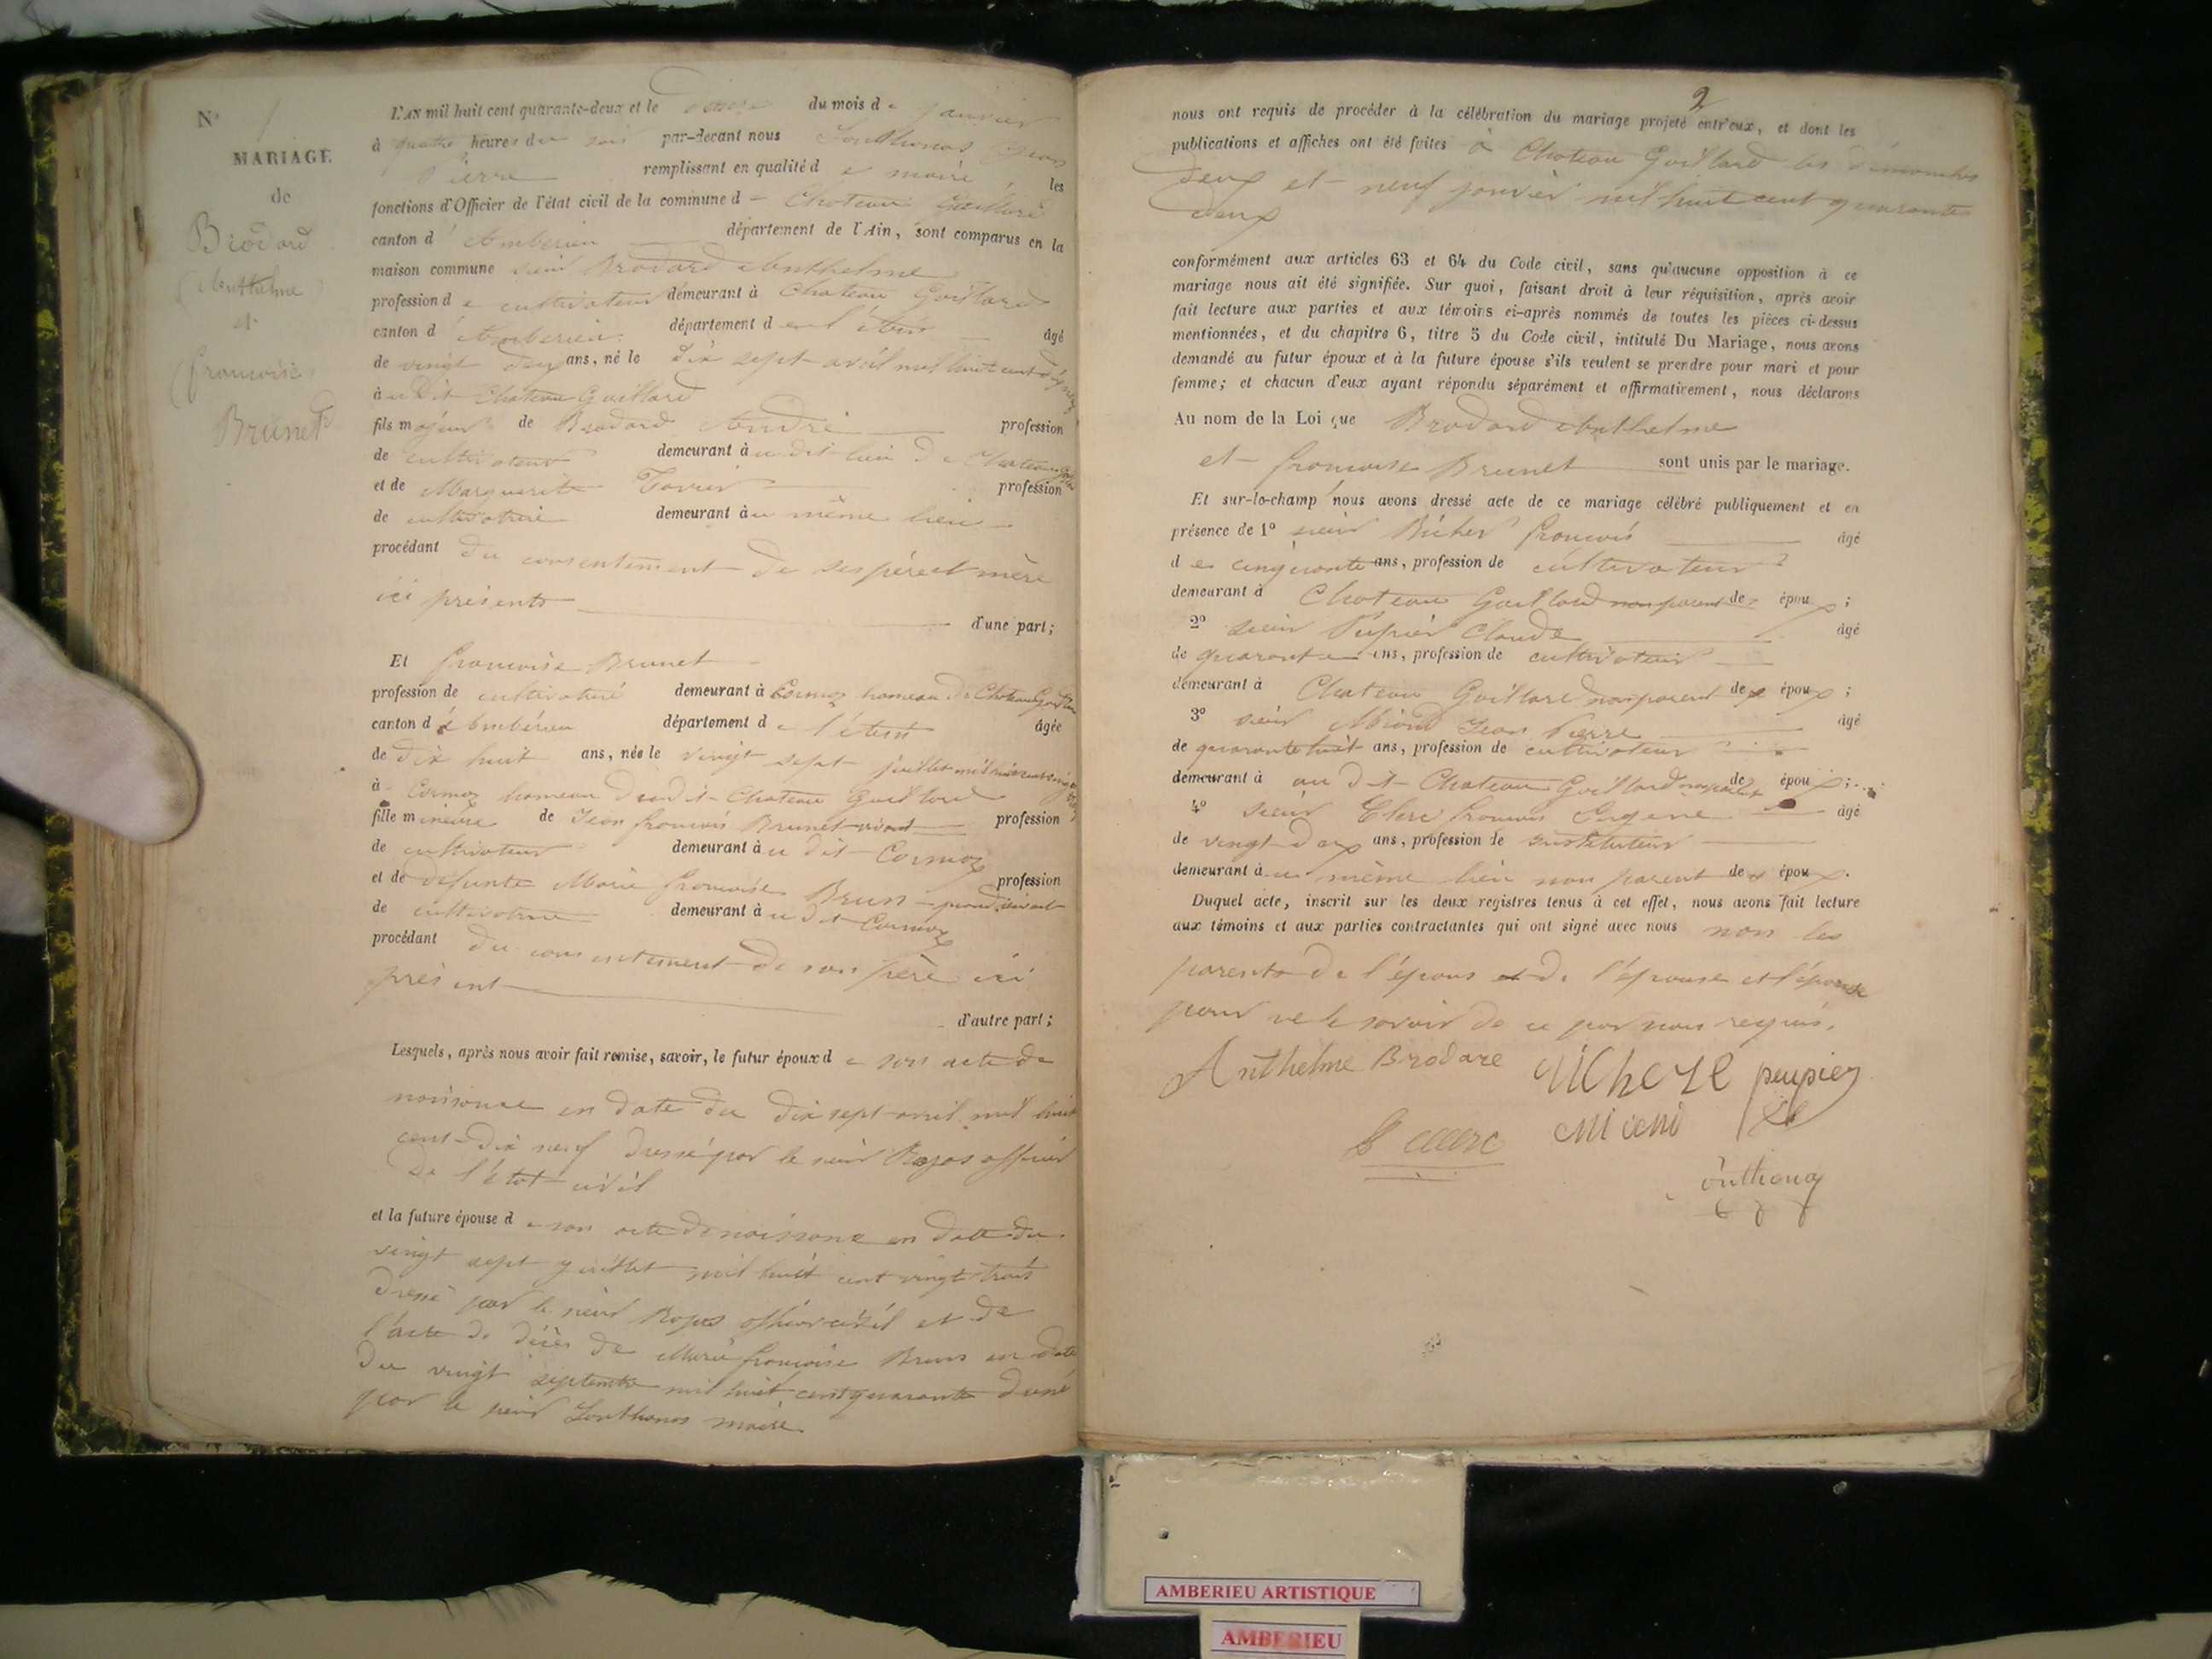 N° 1
MARIAGE
de
Brodard
Anthelme
et
françoise
Brunet
L'AN mil huit cent quarante-deux et le du mois de janvier
à quatre heures du soir par-devant nous Jean
Pierre remplissant en qualité de maire les
fonctions d'Officier de l'état civil de la commune de Chateau Gaillard
canton d'Amberieu département de l'Ain, sont comparus en la
maison commune sieur Brodard Anthelme
profession de cultivateur demeurant à Chateau Gaillard
canton d'Amberieu département de l'Ain âgé
de vingt deux ans, né le dix sept avril mil huit cent dix neuf
à u dit Chateau Gaillard
fils majeur de Brodard André profession
de cultivateur demeurant à u dit lieu de Chateau Gaillard
et de Marguerite profession
de cultivatrice demeurant à u même lieu
procédant du consentement de ses père et mère
ici présents
d'une part;
Et françoise Brunet
profession de cultivatrice demeurant à Cormoz hameau de Chateau Gaillard
canton d'Ambérieu département de l'Ain âgée
de dix huit ans, née le vingt sept juillet mil huit cent vingt trois
à Cormoz hameau dudit Chateau Gaillard
fille mineure de Jean françois Brunet vivant profession
de cultivateur demeurant à u dit Cormoz
et de défunte Marie françoise Brun profession
de cultivatrice demeurant à u dit Cormoz
procédant du consentement de son père ici
présent
d'autre part;
Lesquels, après nous avoir fait remise, savoir, le futur époux de son acte de
naissance en date du dix sept avril mil huit
cent dix neuf dressé par le sieur officier
de l'état civil
et la future épouse de son acte de naissance en date du
vingt sept juillet mil huit cent vingt trois
dressé par le sieur officier civil et de
l'acte de décès de Marie françoise Brun en date
du vingt septembre mil huit cent quarante
par le sieur maire
2
nous ont requis de procéder à la célébration du mariage projeté entr'eux, et dont les
publications et affiches ont été faites à Chateau Gaillard les dimanches
deux et neuf janvier mil huit cent quarante
deux
conformément aux articles 63 et 64 du Code civil, sans qu'aucune opposition à ce
mariage nous ait été signifiée. Sur quoi, faisant droit à leur réquisition, après avoir
fait lecture aux parties et aux témoins ci-après nommés de toutes les pièces ci-dessus
mentionnées, et du chapitre 6, titre 5 du Code civil, intitulé Du Mariage, nous avons
demandé au futur époux et à la future épouse s'ils veulent se prendre pour mari et pour
femme; et chacun d'eux ayant répondu séparément et affirmativement, nous déclarons
Au nom de la Loi que Brodard Anthelme
et françoise Brunet sont unis par le mariage.
Et sur-le-champ nous avons dressé acte de ce mariage célébré publiquement et en
présence de 1° sieur françois âgé
de cinquante ans, profession de cultivateur
demeurant à Chateau Gaillard non parent des époux;
2° sieur Pupier Claude âgé
de quarante ans, profession de cultivateur
demeurant à Chateau Gaillard non parent des époux;
3° sieur Jean Pierre âgé
de quarante huit ans, profession de cultivateur
demeurant à au dit Chateau Gaillard non parent des époux;
4° sieur Clerc françois Eugene âgé
de vingt deux ans, profession de instituteur
demeurant à u même lieu non parent des époux.
Duquel acte, inscrit sur les deux registres tenus à cet effet, nous avons fait lecture
aux témoins et aux parties contractantes qui ont signé avec nous non les
parents de l'époux et de l'épouse et l'épouse
pour ne le savoir de ce par nous requis.
Anthelme Brodare
peupier
clerc
AMBERIEU ARTISTIQUE
AMBERIEU